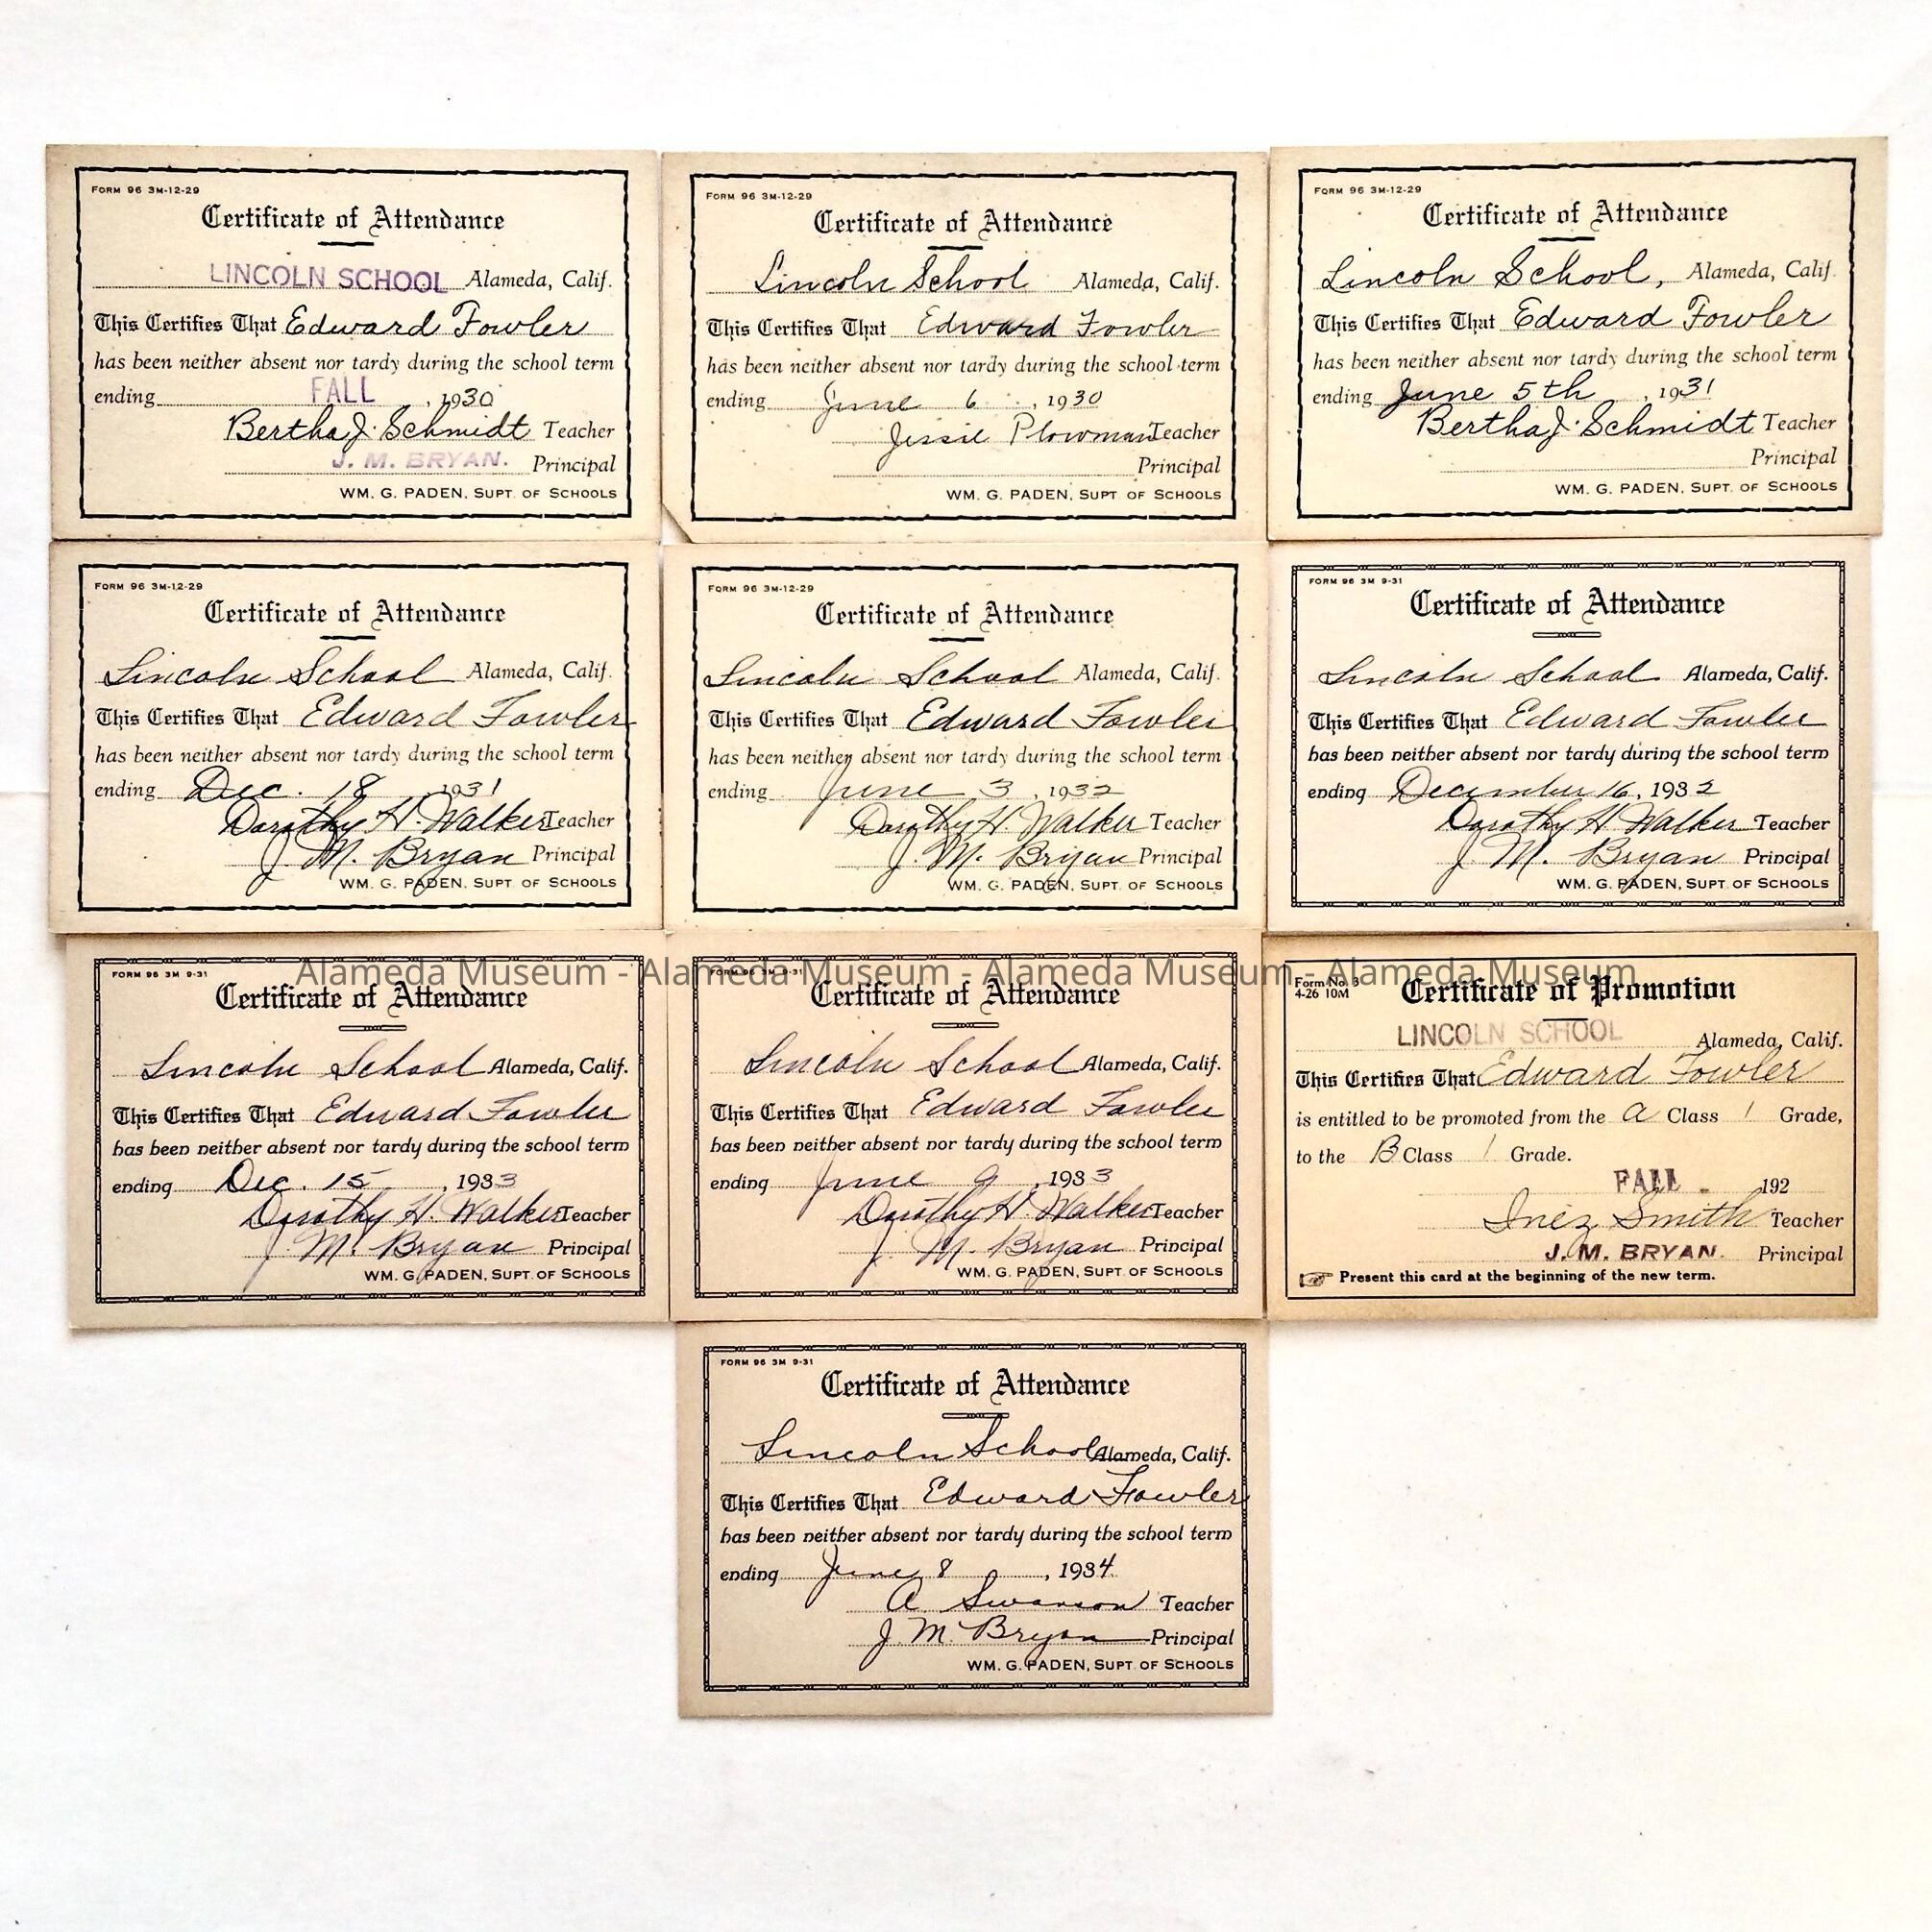 FORM 96 3M-12-29
Certificate of Attendance
LINCOLN SCHOOL Alameda, Calif.
This Certifies That Edward Fowler
has been neither absent nor tardy during the school term
ending FALL , 1930
Bertha J. Schmidt Teacher
J. M. BRYAN. Principal
WM. G. PADEN, SUPT. OF SCHOOLS
FORM 96 3M-12-29
Certificate of Attendance
Lincoln School Alameda, Calif.
This Certifies That Edward Fowler
has been neither absent nor tardy during the school term
ending June 6 , 1930
Jessie Plowman Teacher
Principal
WM. G. PADEN, SUPT. OF SCHOOLS
FORM 96 3M-12-29
Certificate of Attendance
Lincoln School, Alameda, Calif.
This Certifies That Edward Fowler
has been neither absent nor tardy during the school term
ending June 5th , 1931
Bertha J. Schmidt Teacher
Principal
WM. G. PADEN, SUPT. OF SCHOOLS
FORM 96 3M-12-29
Certificate of Attendance
Lincoln School Alameda, Calif.
This Certifies That Edward Fowler
has been neither absent nor tardy during the school term
ending Dec. 18 , 1931
Dorothy H. Walker Teacher
J. M. Bryan Principal
WM. G. PADEN, SUPT. OF SCHOOLS
FORM 96 3M-12-29
Certificate of Attendance
Lincoln School Alameda, Calif.
This Certifies That Edward Fowler
has been neither absent nor tardy during the school term
ending June 3 , 1932
Dorothy H. Walker Teacher
J. M. Bryan Principal
WM. G. PADEN, SUPT. OF SCHOOLS
FORM 96 3M 9-31
Certificate of Attendance
Lincoln School Alameda, Calif.
This Certifies That Edward Fowler
has been neither absent nor tardy during the school term
ending December 16, 1932
Dorothy H Walker Teacher
J. M. Bryan Principal
WM. G. PADEN, SUPT. OF SCHOOLS
Alameda Museum - Alameda Museum - Alameda Museum - Alameda Museum
FORM 96 3M 9-31
Certificate of Attendance
Lincoln School Alameda, Calif.
This Certifies That Edward Fowler
has been neither absent nor tardy during the school term
ending Dec. 15 , 1933
Dorothy H. Walker Teacher
J. M. Bryan Principal
WM. G. PADEN, SUPT. OF SCHOOLS
FORM 96 3M 9-31
Certificate of Attendance
Lincoln School Alameda, Calif.
This Certifies That Edward Fowler
has been neither absent nor tardy during the school term
ending June 9 , 1933
Dorothy H. Walker Teacher
J. M. Bryan Principal
WM. G. PADEN, SUPT. OF SCHOOLS
Form No. 3
4-26 10M
Certificate of Promotion
LINCOLN SCHOOL Alameda, Calif.
This Certifies That Edward Fowler
is entitled to be promoted from the A Class 1 Grade,
to the B Class 1 Grade.
FALL 192
Inez Smith Teacher
J. M. BRYAN. Principal
Present this card at the beginning of the new term.
FORM 96 3M 9-31
Certificate of Attendance
Lincoln School Alameda, Calif.
This Certifies That Edward Fowler
has been neither absent nor tardy during the school term
ending June 8 , 1934
A. Swanson Teacher
J. M. Bryan Principal
WM. G. PADEN, SUPT. OF SCHOOLS